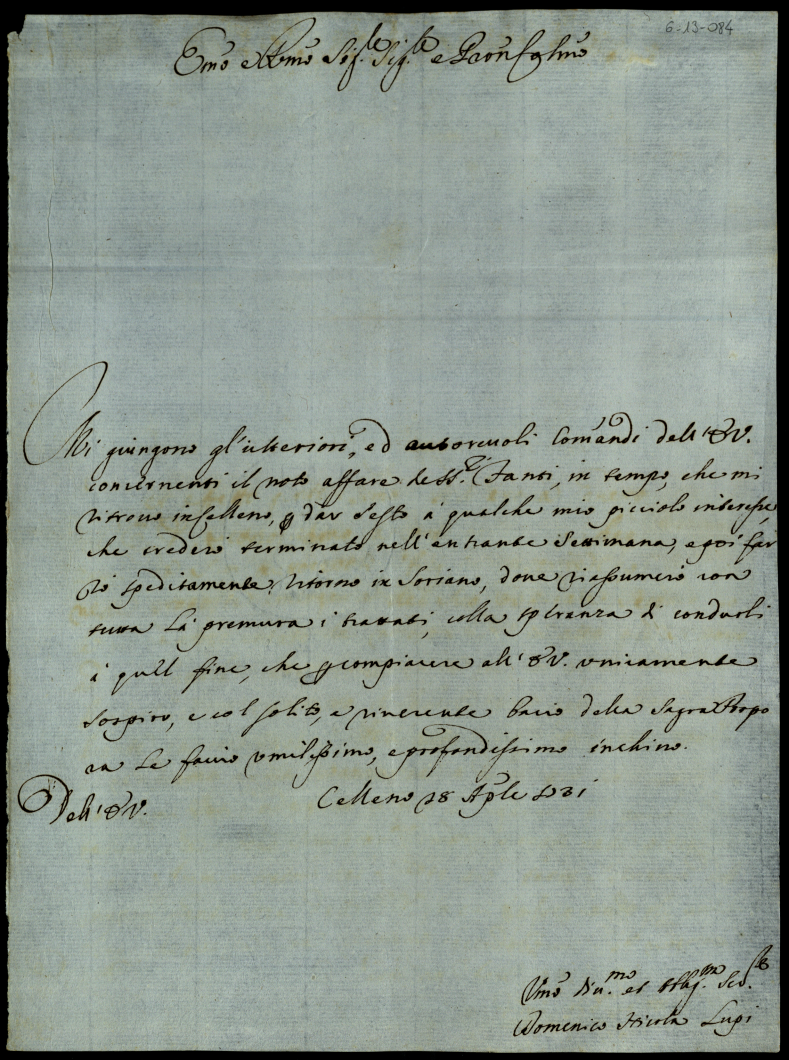 6-13-084
Emo e Rmo Sig.re Sig.re e Pron Colmo
Mi giungono gl'ulteriori, ed autorevoli Comandi dell'E.V.
concernenti il noto affare de SS.ri Fanti, in tempo, che mi
ritrovo in Celleno, p dar sesto à qualche mio picciolo interesse,
che crederò terminato nell'entrante Settimana, e poi far
rò speditamente ritorno in Soriano, dove riassumerò con
tutta la premura i trattati, colla speranza di condurli
à quel fine, che p compiacere all'E.V. unicamente
sospiro, e col solito, e riverente bacio della Sagra Porpo
ra Le faccio umilissimo, e profondissimo inchino.
Dell'E.V. Celleno 28 Aple 1731
Umo Div.mo et Obblig.mo Ser.re
Domenico Nicola Lupi